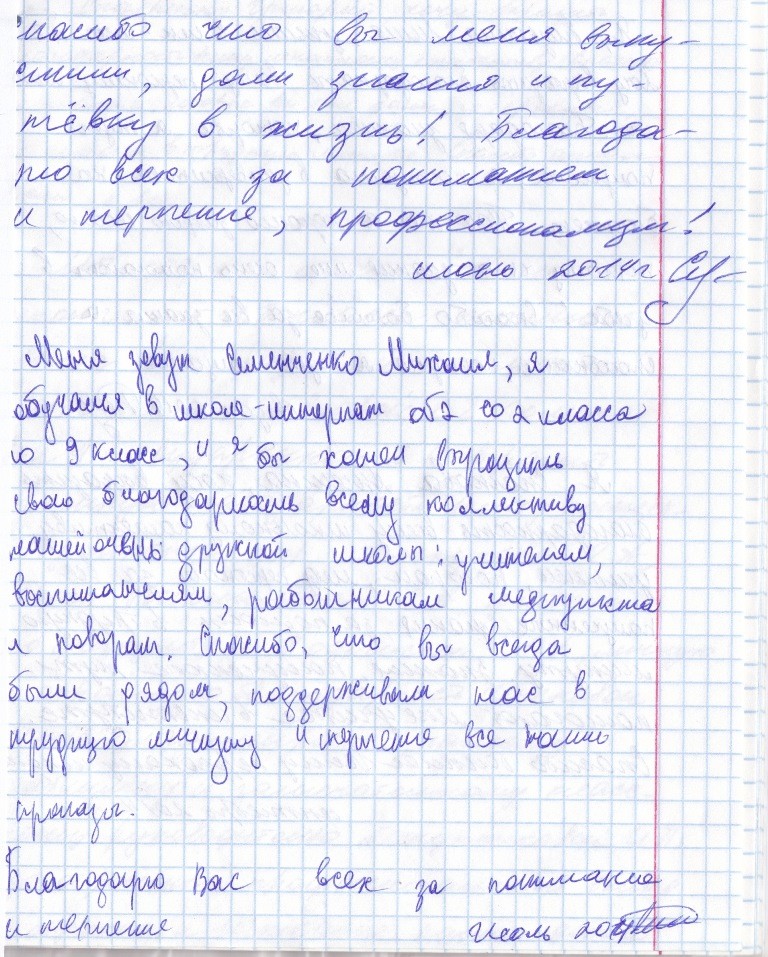 спасибо что вы меня выпу-
стили, дали знания и пу-
тёвку в жизнь! Благода-
рю всех за понимание
и терпение, профессионализм!
июнь 2014г.
Меня зовут Семенченко Михаил, я
обучался в школе-интернат №2 со 2 класса
по 9 класс, и я бы хотел выразить
свою благодарность всему коллективу
нашей очень дружной школы: учителям,
воспитателям, работникам медпункта
и поварам. Спасибо, что вы всегда
были рядом, поддерживали нас в
трудную минуту и терпения все наши
проказы.
Благодарю Вас всех за понимание
и терпение Июль